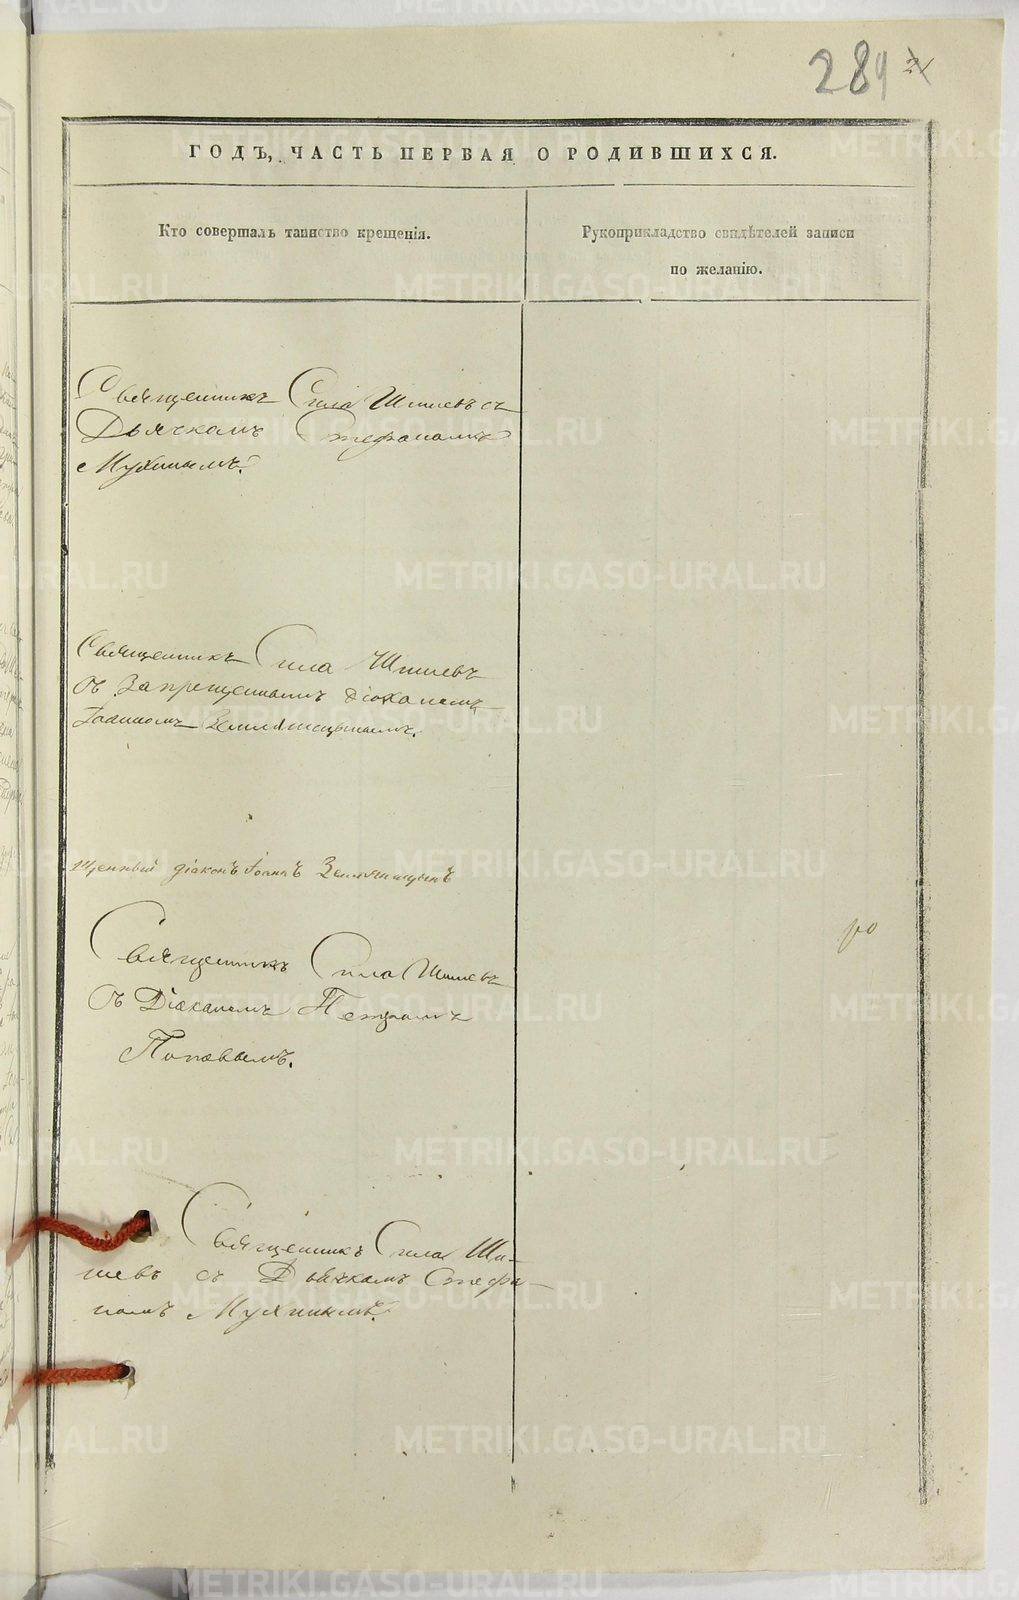 289
ГОДЪ, ЧАСТЬ ПЕРВАЯ О РОДИВШИХСЯ.
Кто совершалъ таинство крещенія.
Рукоприкладство свидѣтелей записи
по желанію.
Священникъ Сила Шишевъ съ
Дьячкомъ Стефаномъ
Мухинымъ.
Священникъ Сила Шишевъ
съ Запрещеннымъ Діакономъ
Іоанномъ Земляницынымъ.
щенный діаконъ Іоаннъ Земляницынъ
Священникъ Сила Шишевъ
съ Діакономъ Петромъ
Поповымъ.
Священникъ Сила Ши-
шевъ съ Дьячкомъ Стефа-
номъ
METRIKI.GASO-URAL.RU